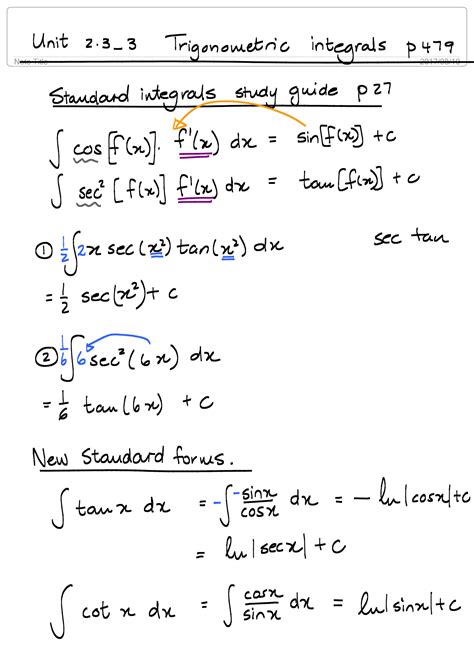 Unit 2.3_3 Trigonometric integrals p479
Note Title
Standard integrals study guide p27
∫ cos[f(x)]. f'(x) dx = sin[f(x)] + c
∫ sec² [f(x)] f'(x) dx = tan[f(x)] + c
① ½∫2x sec(x²) tan(x²) dx sec tan
= ½ sec(x²) + c
② 1/6∫6 sec²(6x) dx
= 1/6 tan(6x) + c
New Standard forms.
∫ tan x dx = -∫ -sinx/cosx dx = - ln|cosx| + c
= ln|secx| + c
∫ cot x dx = ∫ cosx/sinx dx = ln|sinx| + c